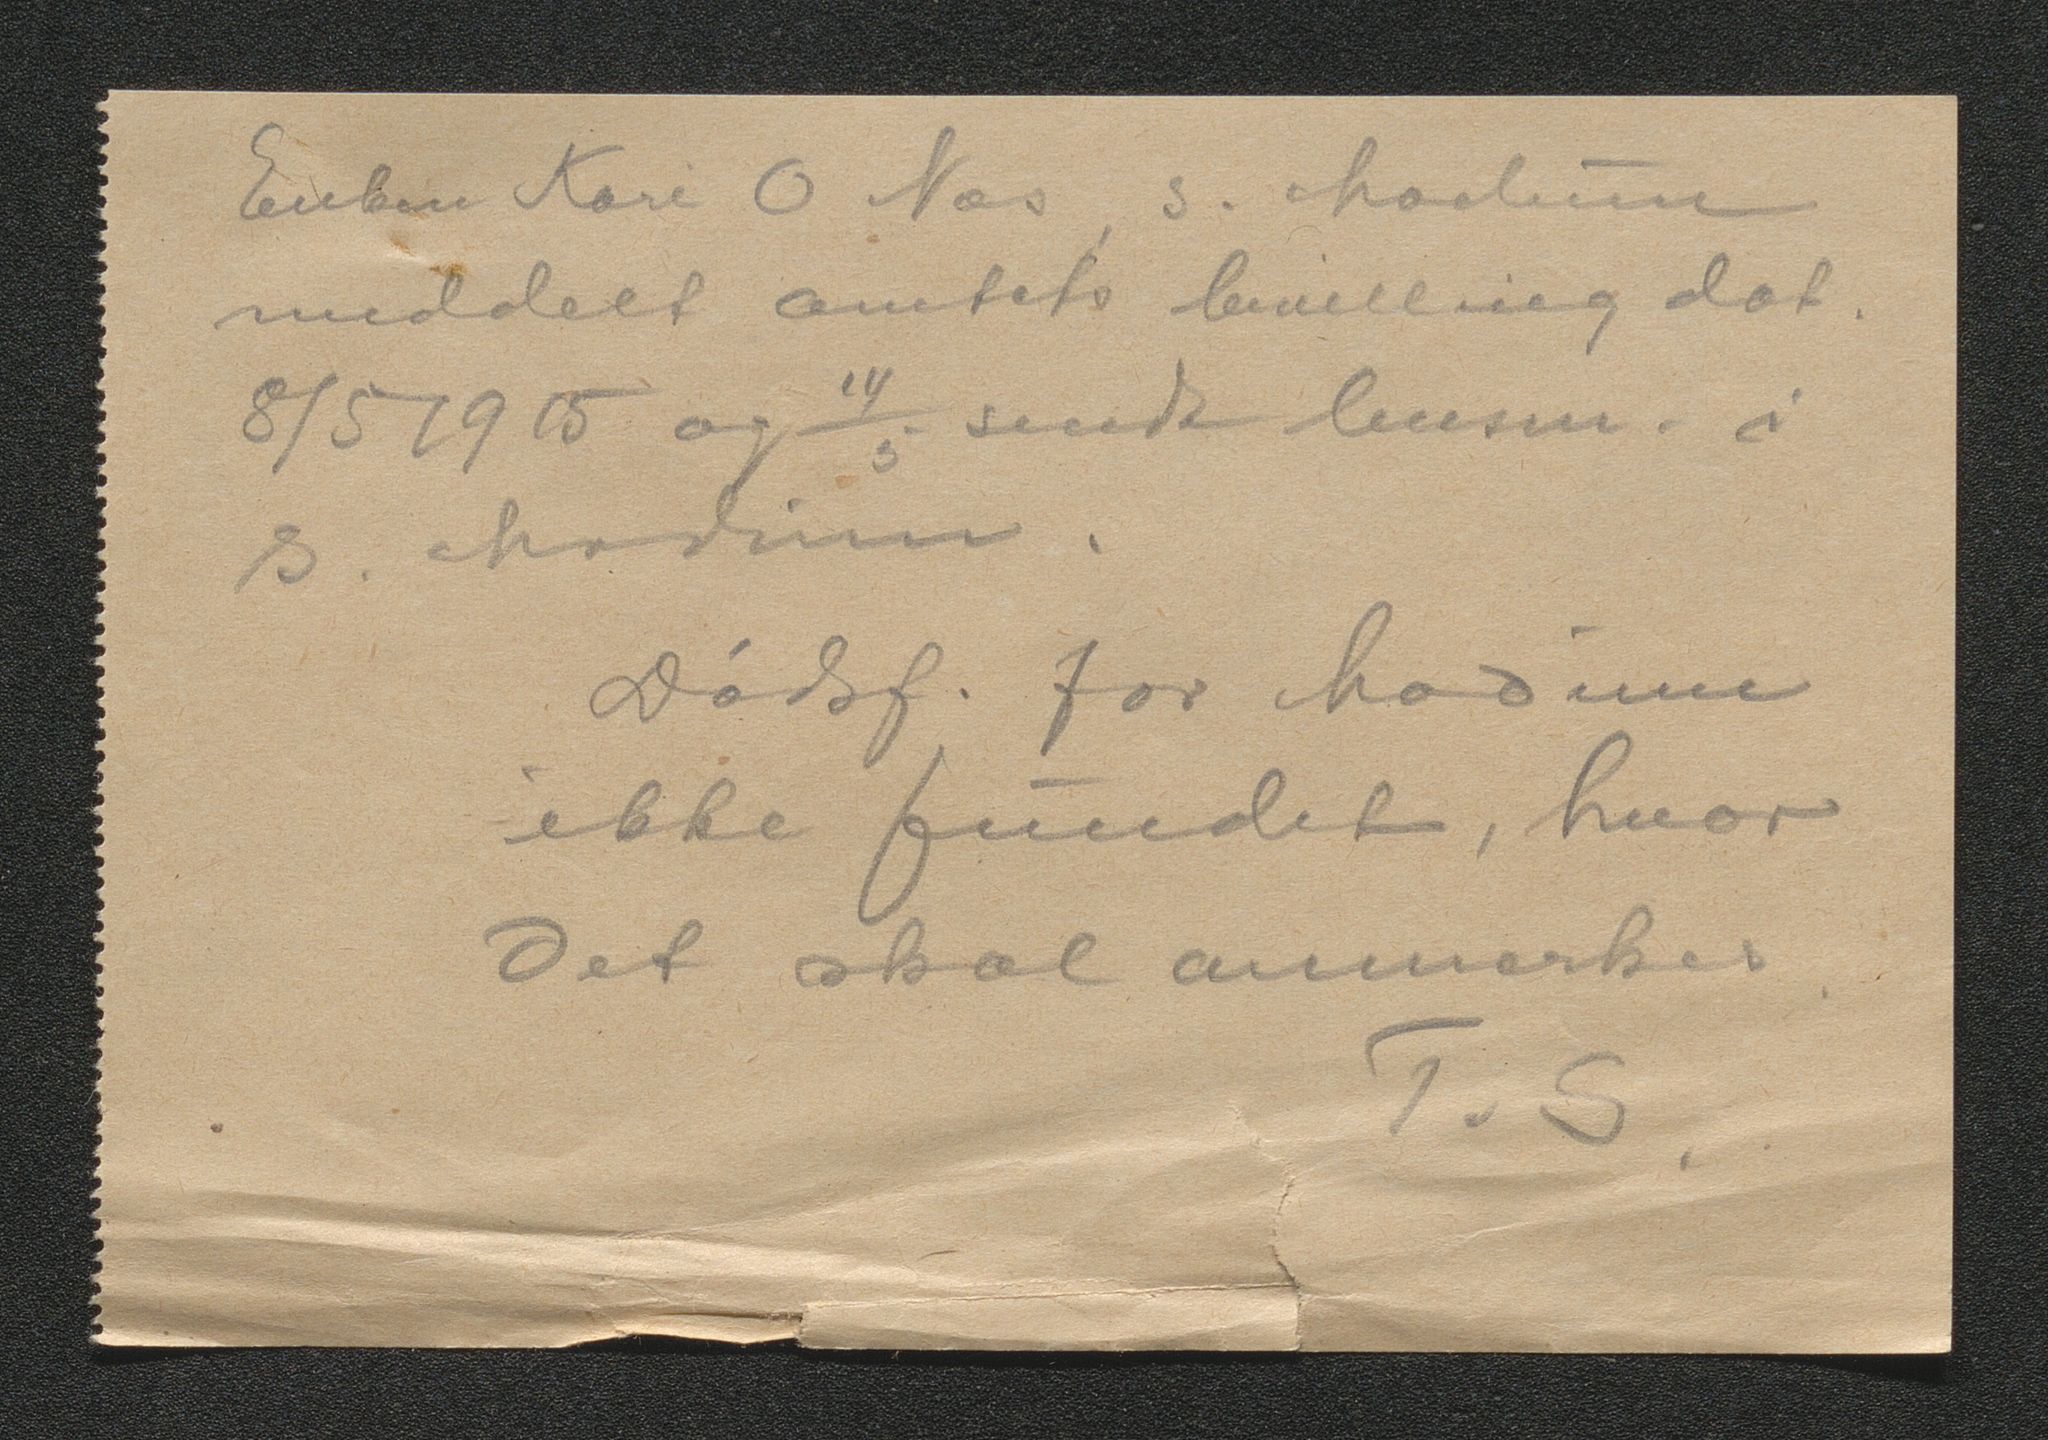 Enken Kari O Næs, S. Modum
meddelt amtets bevilling dat.
8/5 1915 og 14/5 sendt lensm. i
S. Modum.
Dødsf. for Modum
ikke fundet, hvor
Det skal anmerkes.
T. S.